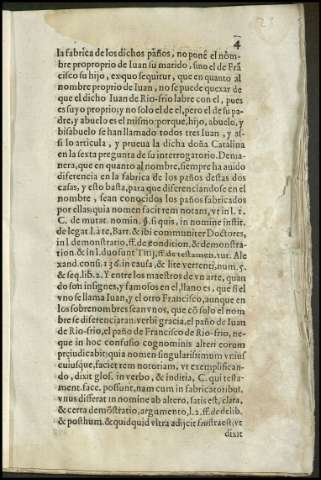 4
la fabrica de los dichos paños, no ponẽ el nõm-
bre proproprio de Iuan su marido, sino el de Frã
cisco su hijo, ex quo sequitur, que en quanto al
nombre proprio de Iuan, no se puede quexar de
que el dicho Iuan de Rio-frio labre con el, pues
es suyo proprio: y no solo el de el, pero el de su pa-
dre, y abuelo es el mismo: porque, hijo, abuelo, y
bisabuelo se han llamado todos tres Iuan, y as-
si lo articula, y prueua la dicha doña Catalina
en la sexta pregunta de su interrogatorio. Dema-
nera, que en quanto al nombre, siempre ha auido
diferencia en la fabrica de los paños destas dos
casas, y esto basta, para que diferenciandose en el
nombre, sean conocidos los paños fabricados
por ellas: quia nomen facit rem notam, vt in l. 2.
C. de mutat. nomin. §. si quis, in nomine instit.
de legat. l. a te, Bart. & ibi communiter Doctores,
in l. demonstratio. ff. de condition. & demonstra-
tion. & in l. duo sunt Titij, ff. de testamen. tut. Ale
xand. cons. 136. in causa, & lite vertente, num. 5.
& seq. lib. 2. Y entre los maestros de vn arte, quan
do son insignes, y famosos en el, llano es, que si el
vno se llama Iuan, y el otro Francisco, aunque en
los sobrenombres sean vnos, que cõ solo el nom
bre se diferenciaran: verbi gracia, el paño de Iuan
de Rio-frio, el paño de Francisco de Rio-frio, ne-
que in hoc confusio cognominis alteri eorum
præjudicabit: quia nomen singularissimum vnius
cuiusque, faciet rem notoriam, vt exemplifican-
do, dixit glos. in verbo, & inditia, C. qui testa-
ment. face. possunt, nam cum in fabricatoribus,
vnus differat in nomine ab altero, satis est, clara,
& certa demõstratio, argumento, l. 2. ff. de de lib.
& posthum. & quidquid vltra adijcit frustra est: vt
dixit